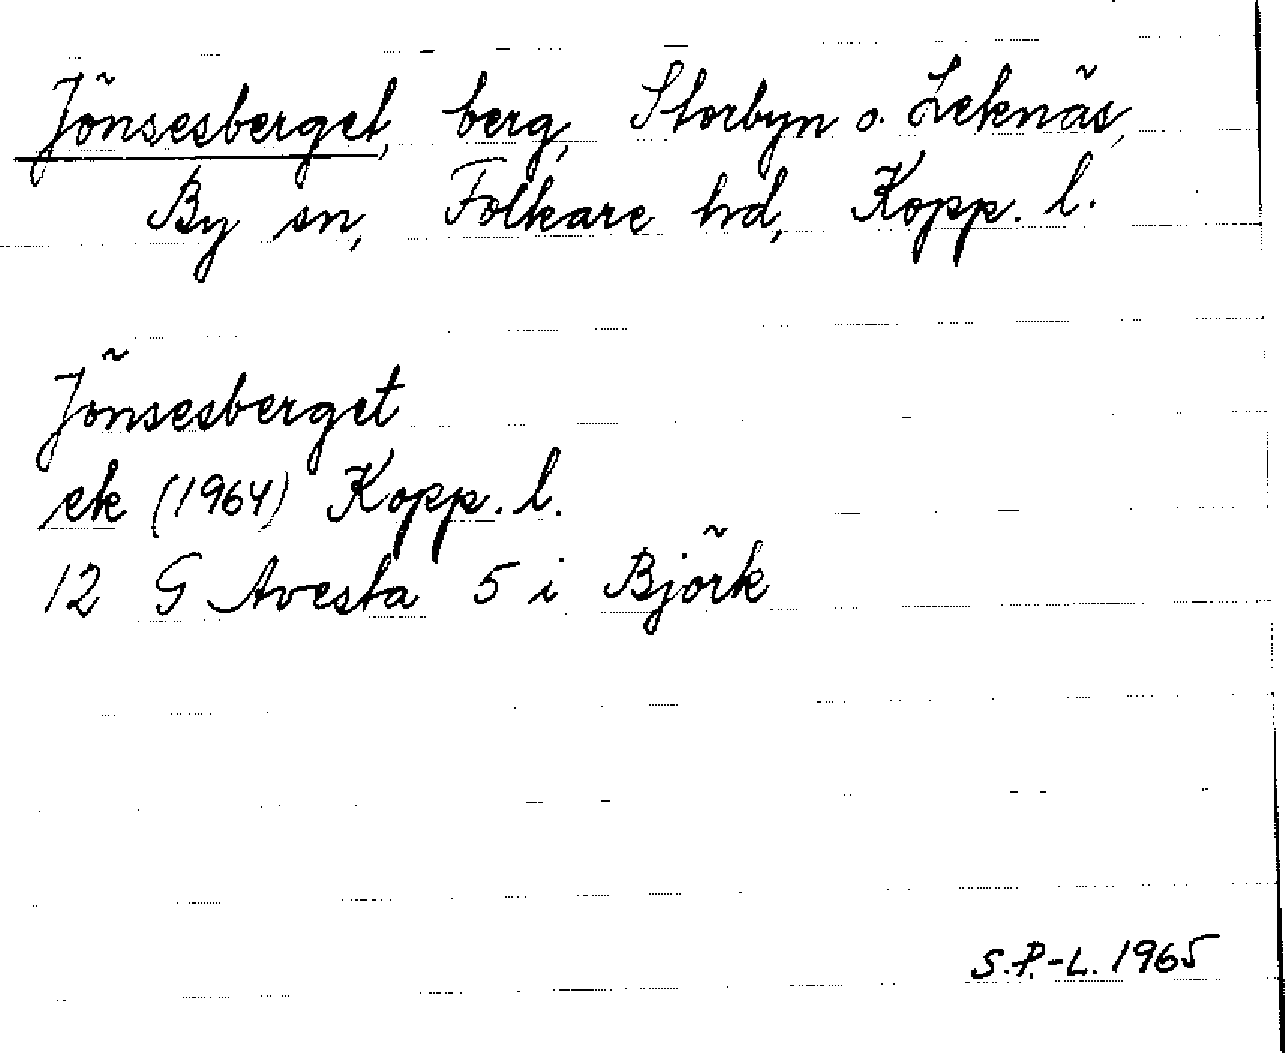 Jönsesberget, berg, Storbyn o. Leknäs,
By sn, Folkare hd, Kopp. l.
Jönsesberget
ek (1964) Kopp. l.
12 G Avesta 5 i Björk
S.P.-L. 1965